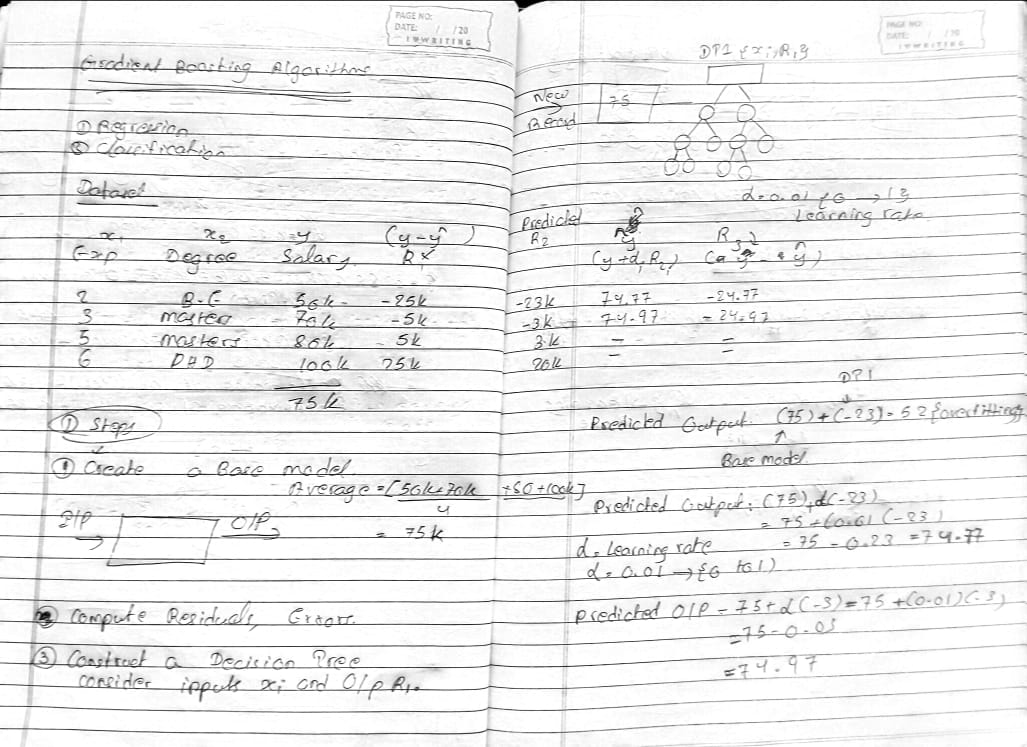 PAGE NO:
DATE: / /20
Gradient Boosting Algorithms
① Regression
② Classification
Dataset
x₁ x₂ y (y-ŷ)
Exp Degree Salary R₁
2 B.E 50k -25k
3 masters 70k -5k
5 masters 80k 5k
6 PHD 100k 25k
75k
① Steps
① Create a Base model.
Average = [50k+70k+80+100k]
4
I/P O/P = 75k
② Compute Residuals, Errors.
③ Construct a Decision Tree
consider inputs xi and O/p R₁.
PAGE NO:
DATE: / /20
DT1 {xi, R₁}
New 75
Record
α=0.01 {0 → 1}
Learning rate
Predicted
R₂ ŷ R₃
(y+α,R₂) (y-ŷ)
-23k 74.77 -24.77
-3k 74.97 -24.97
3k - =
20k = =
DT1
Predicted Output: (75)+(-23)=52 {overfitting}
Base model.
Predicted Output: (75)+α(-23)
= 75+(0.01)(-23)
α = Learning rate = 75-0.23 = 74.77
α = 0.01 → {0 to 1)
Predicted O/P = 75+α(-3)=75+(0.01)(-3)
=75-0.03
=74.97